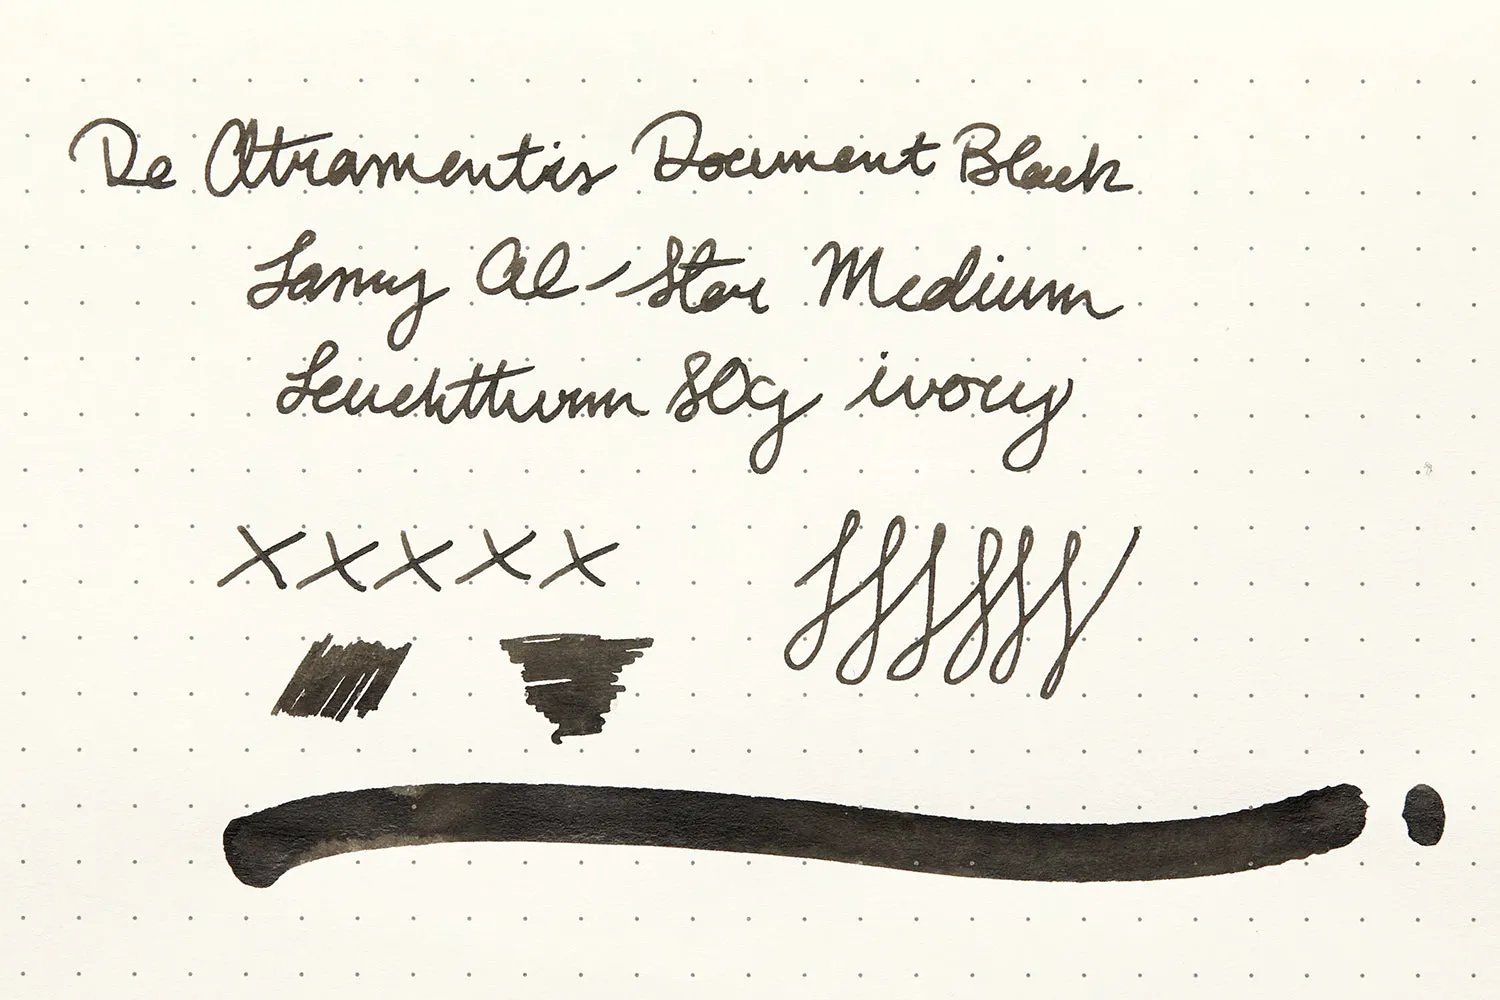 De Atramentis Document Black
Lamy Al-Star Medium
Leuchtturm 80g ivory
x x x x x